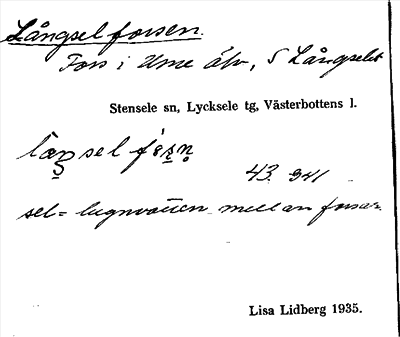 Långselforsen.
Fors i Ume älv, S Långselet
Stensele sn, Lycksele tg, Västerbottens l.
43 341
sel = lugnvatten mellan forsar
Lisa Lidberg 1935.